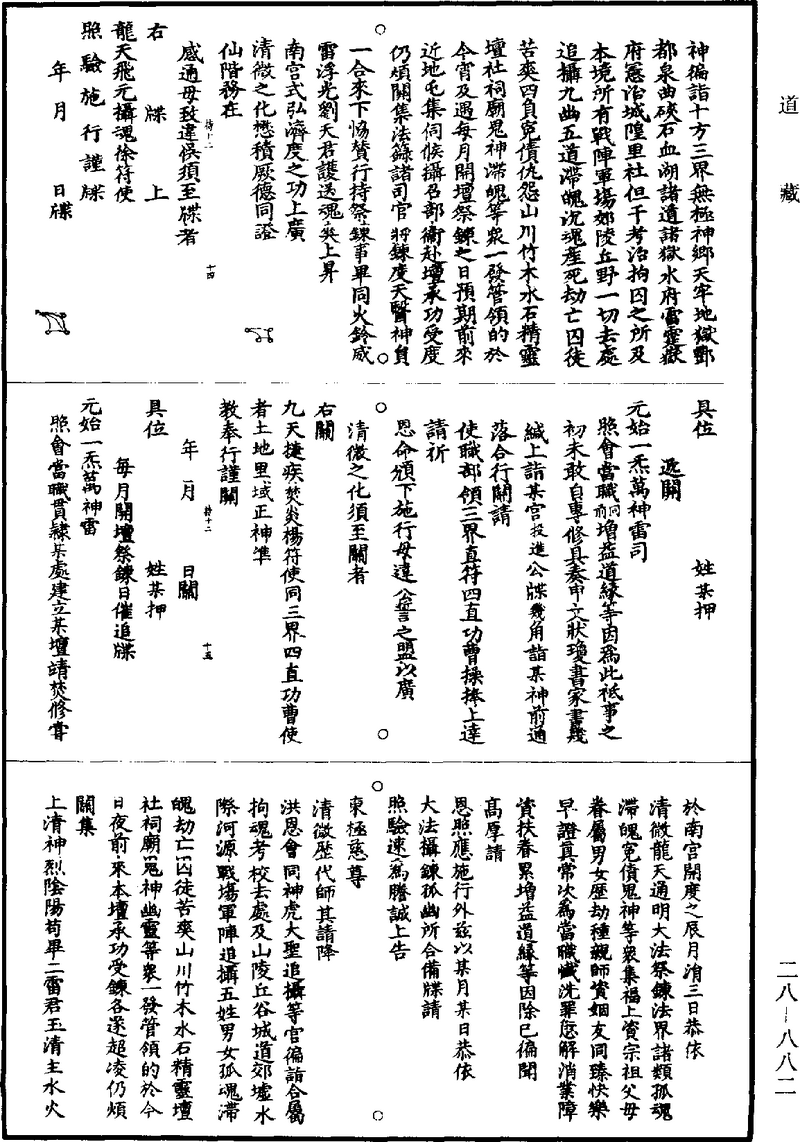 道藏
神徧詣十方三界無極神鄉天牢地獄酆
都泉曲硤石血湖諸遺諸獄水府雷霆嶽
府冤治城隍里社但干考治拘囚之所及
本境所有戰陣軍塲郊陵丘野一切去處
追攝九幽五道滯魄沉魂產死劫亡囚徒
苦爽四負冤債仇怨山川竹木水石精靈
壇社祠廟鬼神滯魄等衆一發管領的於
今宵及遇每月開壇祭鍊之日預期前來
近地屯集伺候攝召部衛赴壇承功受度
仍煩關集法籙諸司官將鍊度天醫神負
一合來下恊賛行持祭鍊事畢同火鈴威
雷浮光劉天君護送魂爽上昇
南宫式弘濟度之功上廣
清微之化懋積厥德同證
仙階務在
持十二
感通毋致違悞須至牒者
十四
右牒上
龍天飛元攝魂徐符使
照驗施行謹牒
年月日牒
具位姓某押
逓關
元始一炁萬神雷司
照會當職同前增益道緣等因爲此祗事之
初未敢自專修具奏申文狀瓊書家書幾
緘上詣某宫投進公牒幾角詣某神前通
落合行關請
使職部領三界直符四直功曹操捧上達
請祈
恩命頒下施行毋違公誓之盟以廣
清微之化須至關者
右關
九天捷疾焚炎楊符使同三界四直功曹使
者土地里域正神準
教奉行謹關
持十二
年月日關
十五
具位姓某押
每月開壇祭鍊日催追牒
元始一炁萬神雷
照會當職貫隸某處建立某壇靖焚修嘗
於南宫開度之辰月消三日恭依
清微龍天通明大法祭鍊法界諸類孤魂
滯魄冤債鬼神等衆集福上資宗祖父母
眷屬男女歴劫種親師資姻友同臻快樂
早證真常次爲當職懴洗罪愆解消業障
資扶眷累增益道緣等因除已徧聞
髙厚請
恩照應施行外兹以某月某日恭依
大法攝鍊孤幽所合備牒請
照驗速爲騰誠上告
東極慈尊
清微歴代師真請降
洪恩會同神虎大聖追攝等官徧詣合屬
拘魂考校去處及山陵丘谷城道郊墟水
際河源戰塲軍陣追攝五姓男女孤魂滯
魄劫亡囚徒苦爽山川竹木水石精靈壇
社祠廟鬼神幽靈等衆一發管領的於今
日夜前來本壇承功受鍊各遂超凌仍煩
關集
上清神烈陰陽苟畢二雷君玉清主水火
二八—八八二